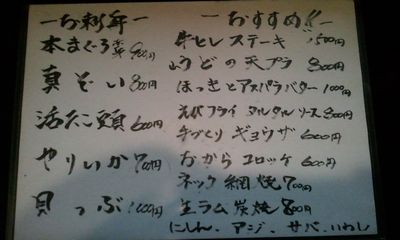 ーお刺身ー
本まぐろ 900円
真ぞい 800円
活たこ頭 600円
やりいか 700円
貝つぶ 1000円
ーおすすめ!!ー
牛ヒレステーキ 1500円
山うどの天プラ 800円
ほっきとアスパラバター 1000円
えびフライ タルタルソース 800円
手づくりギョウザ 600円
おからコロッケ 600円
ネック網焼 700円
生ラム炭焼 800円
にしん、アジ、サバ、いわし